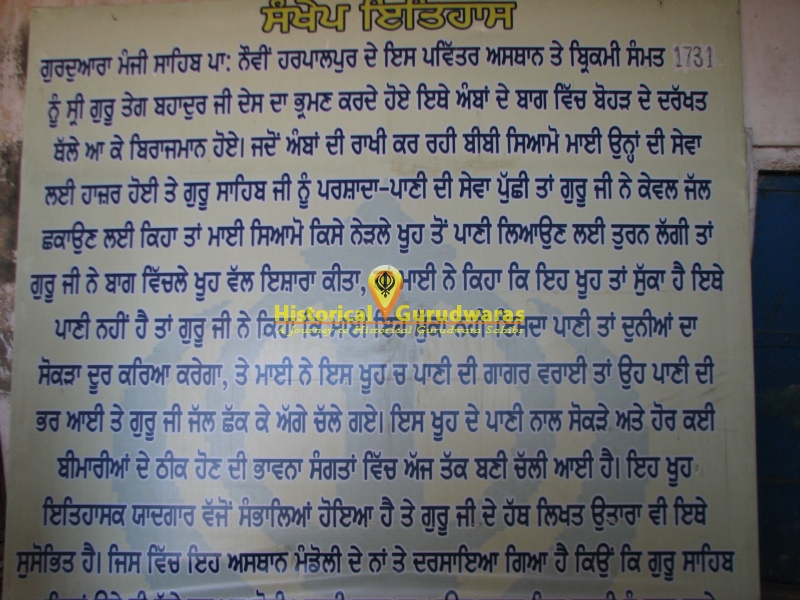 ਸੰਖੇਪ ਇਤਿਹਾਸ
ਗੁਰਦੁਆਰਾ ਮੰਜੀ ਸਾਹਿਬ ਪਾ: ਨੌਵੀਂ ਹਰਪਾਲਪੁਰ ਦੇ ਇਸ ਪਵਿੱਤਰ ਅਸਥਾਨ ਤੇ ਬ੍ਰਿਕਮੀ ਸੰਮਤ 1731
ਨੂੰ ਸ੍ਰੀ ਗੁਰੂ ਤੇਗ ਬਹਾਦੁਰ ਜੀ ਦੇਸ ਦਾ ਭ੍ਰਮਣ ਕਰਦੇ ਹੋਏ ਇਥੇ ਅੰਬਾਂ ਦੇ ਬਾਗ ਵਿੱਚ ਬੋਹੜ ਦੇ ਦਰੱਖਤ
ਥੱਲੇ ਆ ਕੇ ਬਿਰਾਜਮਾਨ ਹੋਏ। ਜਦੋਂ ਅੰਬਾਂ ਦੀ ਰਾਖੀ ਕਰ ਰਹੀ ਬੀਬੀ ਸਿਆਮੋ ਮਾਈ ਉਨ੍ਹਾਂ ਦੀ ਸੇਵਾ
ਲਈ ਹਾਜ਼ਰ ਹੋਈ ਤੇ ਗੁਰੂ ਸਾਹਿਬ ਜੀ ਨੂੰ ਪਰਸ਼ਾਦਾ-ਪਾਣੀ ਦੀ ਸੇਵਾ ਪੁੱਛੀ ਤਾਂ ਗੁਰੂ ਜੀ ਨੇ ਕੇਵਲ ਜੱਲ
ਛਕਾਉਣ ਲਈ ਕਿਹਾ ਤਾਂ ਮਾਈ ਸਿਆਮੋ ਕਿਸੇ ਨੇੜਲੇ ਖੂਹ ਤੋਂ ਪਾਣੀ ਲਿਆਉਣ ਲਈ ਤੁਰਨ ਲੱਗੀ ਤਾਂ
ਗੁਰੂ ਜੀ ਨੇ ਬਾਗ ਵਿੱਚਲੇ ਖੂਹ ਵੱਲ ਇਸ਼ਾਰਾ ਕੀਤਾ, ਮਾਈ ਨੇ ਕਿਹਾ ਕਿ ਇਹ ਖੂਹ ਤਾਂ ਸੁੱਕਾ ਹੈ ਇਥੇ
Historical Gurudwaras
A Journey to Historical Gurudwara Sahibs
ਪਾਣੀ ਨਹੀਂ ਹੈ ਤਾਂ ਗੁਰੂ ਜੀ ਨੇ ਦਾ ਪਾਣੀ ਤਾਂ ਦੁਨੀਆਂ ਦਾ
ਸੋਕੜਾ ਦੂਰ ਕਰਿਆ ਕਰੇਗਾ, ਤੇ ਮਾਈ ਨੇ ਇਸ ਖੂਹ ਚ ਪਾਣੀ ਦੀ ਗਾਗਰ ਵਰਾਈ ਤਾਂ ਉਹ ਪਾਣੀ ਦੀ
ਭਰ ਆਈ ਤੇ ਗੁਰੂ ਜੀ ਜੱਲ ਛੱਕ ਕੇ ਅੱਗੇ ਚੱਲੇ ਗਏ। ਇਸ ਖੂਹ ਦੇ ਪਾਣੀ ਨਾਲ ਸੋਕੜੇ ਅਤੇ ਹੋਰ ਕਈ
ਬੀਮਾਰੀਆਂ ਦੇ ਠੀਕ ਹੋਣ ਦੀ ਭਾਵਨਾ ਸੰਗਤਾਂ ਵਿੱਚ ਅੱਜ ਤੱਕ ਬਣੀ ਚੱਲੀ ਆਈ ਹੈ। ਇਹ ਖੂਹ
ਇਤਿਹਾਸਕ ਯਾਦਗਾਰ ਵੱਜੋਂ ਸੰਭਾਲਿਆਂ ਹੋਇਆ ਹੈ ਤੇ ਗੁਰੂ ਜੀ ਦੇ ਹੱਥ ਲਿਖਤ ਉਤਾਰਾ ਵੀ ਇਥੇ
ਸੁਸੋਭਿਤ ਹੈ। ਜਿਸ ਵਿੱਚ ਇਹ ਅਸਥਾਨ ਮੰਡੋਲੀ ਦੇ ਨਾਂ ਤੇ ਦਰਸਾਇਆ ਗਿਆ ਹੈ ਕਿਉਂ ਕਿ ਗੁਰੂ ਸਾਹਿਬ